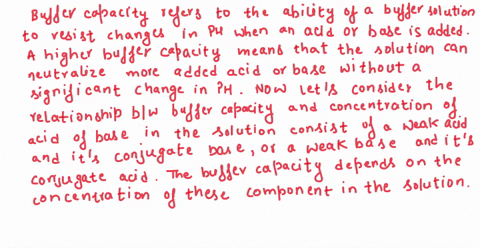 Buffer capacity refers to the ability of a buffer solution
to resist changes in PH when an acid or base is added.
A higher buffer capacity means that the solution can
neutralize more added acid or base without a
significant change in PH. Now let's consider the
relationship b/w buffer capacity and concentration of
acid of base in the solution consist of a weak acid
and it's conjugate base, or a weak base and it's
conjugate acid. The buffer capacity depends on the
concentration of these component in the solution.